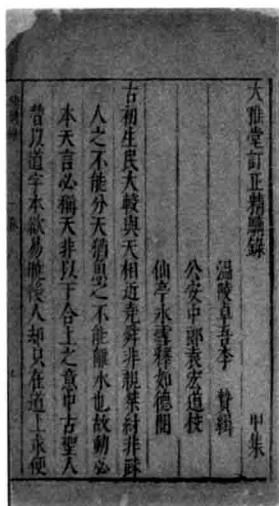 大雅堂訂正精騎錄 甲集
溫陵卓吾李 贄輯
公安中郎袁宏道校
仙亭永雪釋如德閱
古初生民大較與天相近堯舜非親桀紂非疎
人之不能分天猶魚之不能離水也故動必
本天言必稱天非以下合上之意中古聖人
昔以道字本欲易曉後人却只在道上求便